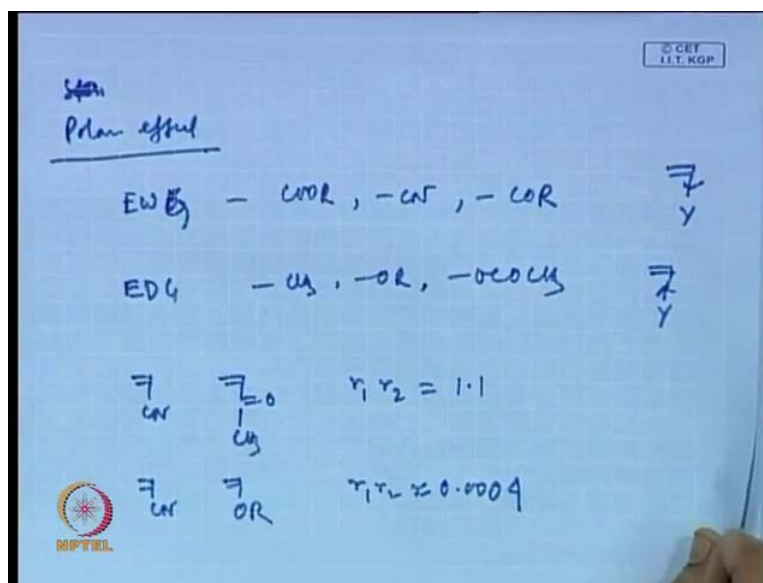 © CET
I.I.T. KGP
Polar effect
EWG - COOR, -CN, -COR
Y
EDG -CH3, -OR, -OCOCH3
Y
CN =O r1 r2 = 1.1
CH3
CN OR r1 r2 ≈ 0.0004
NPTEL